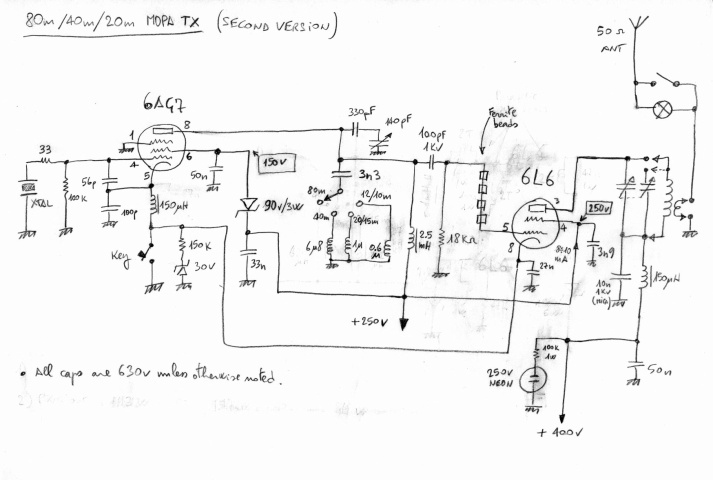 80m/40m/20m MOPA TX (SECOND VERSION)
50 Ω
ANT
6AG7
8
1
6
4
5
33
XTAL
100K
56p
100p
150µH
Key
150K
30V
50n
150V
90V/3W
33n
330pF
140pF
3n3
80m
40m
12/10m
20/15m
6µ8
1µ
0,6
µ
100pF
1KV
2.5
mH
18KΩ
+250V
Ferrite
beads
6L6
3
4
5
8
250V
8÷10
mA
27n
3n9
10n
1KV
(mica)
150µH
100K
1W
250V
NEON
50n
+400V
• All caps are 630V unless otherwise noted.